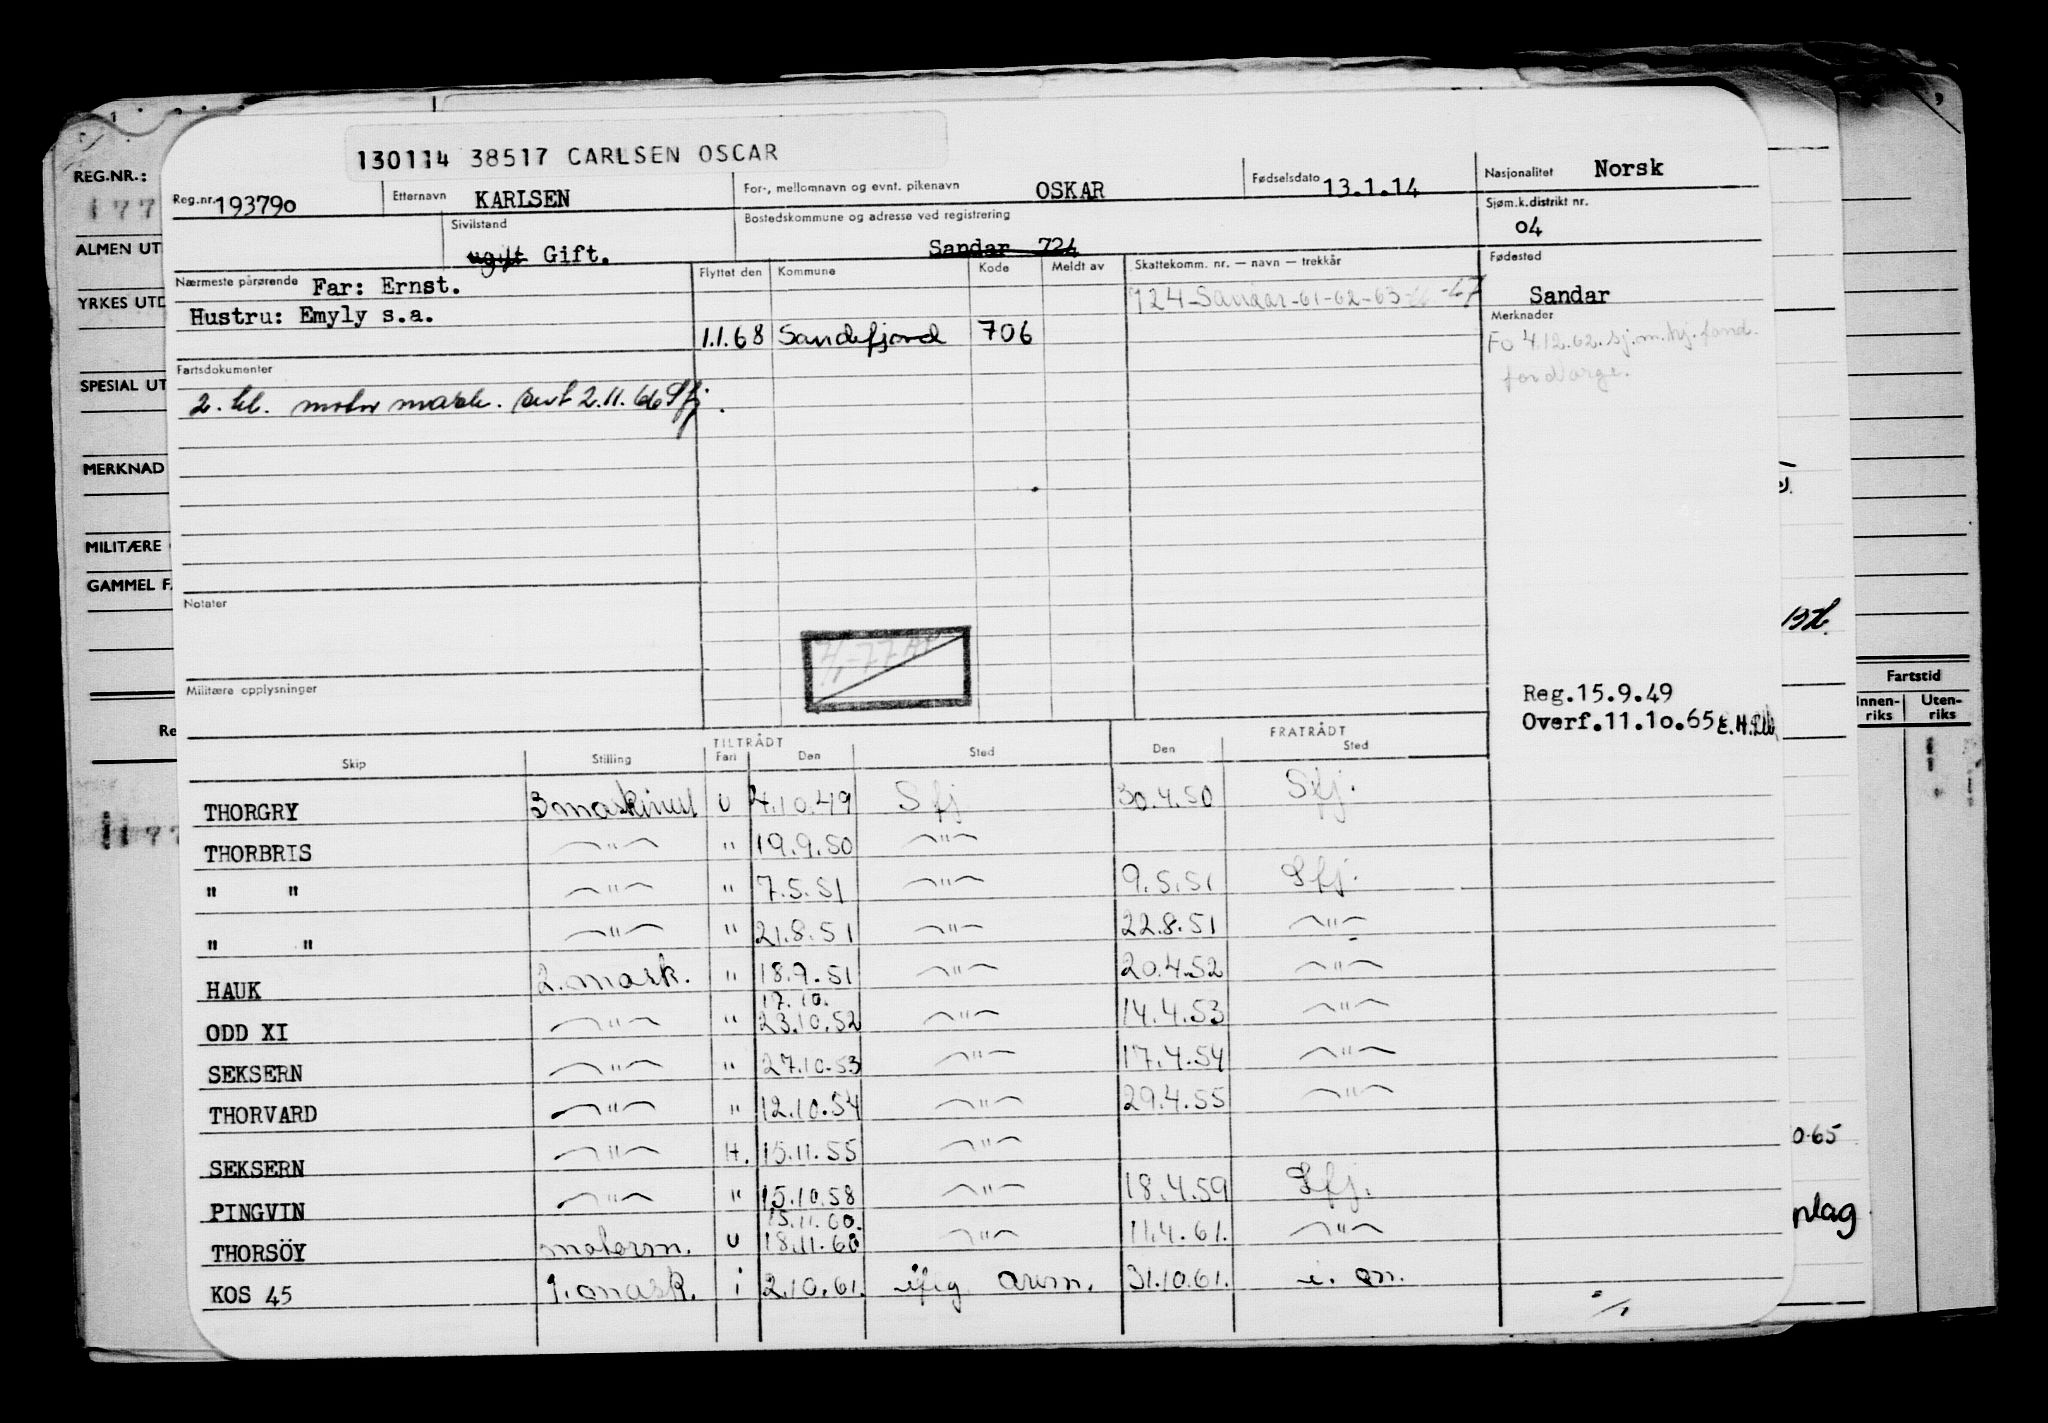 130114 38517 CARLSEN OSCAR
Reg.nr. 193790 Etternavn KARLSEN For-, mellomnavn og evnt. pikenavn OSKAR Fødselsdato 13.1.14 Nasjonalitet Norsk
Sivilstand ugift Gift. Bostedskommune og adresse ved registrering Sandar 724 Sjøm.k.distrikt nr. 04
Nærmeste pårørende Far: Ernst. Flyttet den Kommune Kode Meldt av Skattekomm. nr. — navn — trekkår Fødested
Hustru: Emyly s.a. 724-Sandar-61-62-63 -67 Sandar
1.1.68 Sandefjord 706 Merknader
Fo 4.12.62. sj.m.hj. fond.
for Norge.
Fartsdokumenter
2. kl. motor mask. sert 2.11.66 Sfj.
Notater
Militære opplysninger
Reg.15.9.49
Overf.11.10.65
TILTRÅDT FRATRÅDT
Skip Stilling Fart Den Sted Den Sted
THORGRY 3 maskinist U 4.10.49 Sfj 30.4.50 Sfj.
THORBRIS —"— " 19.9.50 —"—
" " —"— " 7.5.51 —"— 9.5.51 Sfj.
" " —"— " 21.8.51 —"— 22.8.51 —"—
HAUK 2. mask. " 18.9.51 —"— 20.4.52 —"—
17.10.
ODD XI —"— " 23.10.52 —"— 14.4.53 —"—
SEKSERN —"— " 27.10.53 —"— 17.4.54 —"—
THORVARD —"— " 12.10.54 —"— 29.4.55 —"—
SEKSERN —"— H. 15.11.55 —"—
PINGVIN —"— " 15.10.58 —"— 18.4.59 Sfj.
15.11.60.
THORSÖY motorm. U 18.11.60 —"— 11.4.61. —"—
KOS 45 1. mask. i 2.10.61. iflg. 31.10.61.
REG.NR.:
177
ALMEN UT
YRKES UTD
SPESIAL UT
MERKNAD
MILITÆRE
GAMMEL F
Re
Fartstid
Innen-
riks
Uten-
riks
0.65
nlag